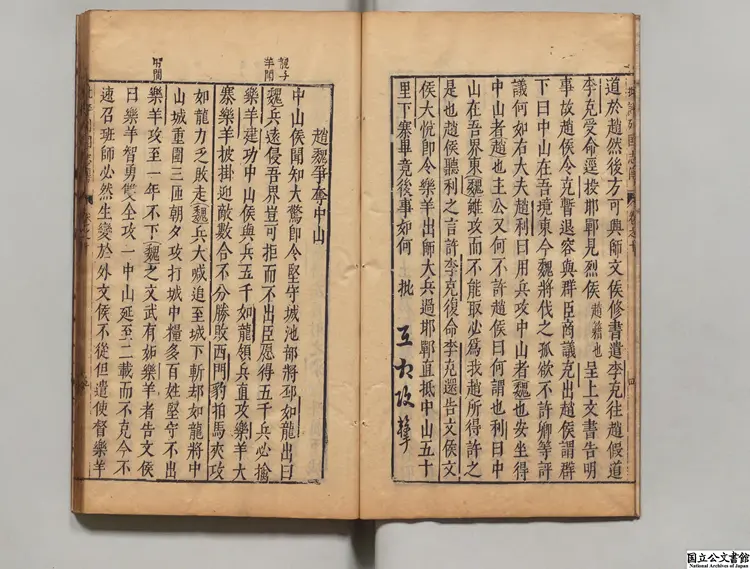 道於趙然後方可興師文侯修書遣李克往趙假道
李克受命逕投邯鄲見烈侯趙籍也呈上文書告明
事故趙侯令克暫退容與群臣商議克出趙侯謂群
下曰中山在吾境東今魏將伐之孤欲不許卿等評
議何如右大夫趙利曰用兵攻中山者魏也安坐得
中山者趙也主公又何不許趙侯曰何謂也利曰中
山在吾界東魏雖攻而不能取必為我趙所得許之
是也趙侯聽利之言許李克復命李克還告文侯文
侯大悅即令樂羊出師大兵過邯鄲直抵中山五十
里下寨畢竟後事如何
批
趙魏爭奪中山
中山侯聞知大驚即令堅守城池部將邳如龍出曰
魏兵遠侵吾界豈可拒而不出臣愿得五千兵必擒
樂羊建功中山侯與兵五千如龍領兵直攻樂羊大
寨樂羊披掛迎敵數合不分勝敗西門豹拍馬夾攻
如龍力乏敗走魏兵大喊追至城下斬却如龍將中
山城重圍三匝朝夕攻打城中糧多百姓堅守不出
樂羊攻至一年不下魏之文武有妬樂羊者告文侯
曰樂羊智勇雙全攻一中山延至二載而不克今不
速召班師必然生變於外文侯不從但遣使督樂羊
国立公文書館
National Archives of Japan